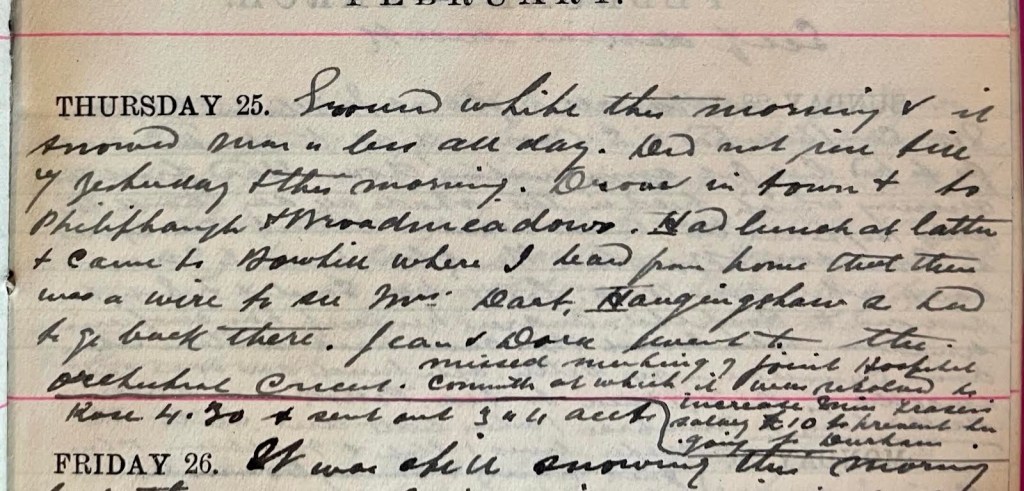 FEBRUARY.
THURSDAY 25. Ground white this morning & it
snowed more or less all day. Did not rise till
9 yesterday & this morning. Drove in town & to
Philiphaugh & Broadmeadows. Had lunch at latter
& came to Bowhill where I heard from home that there
was a wire to see Mrs Dart, Hangingshaw & had
to go back there. Jean & Dora went to the
orchestral Concert. missed meeting of Joint Hospital
Committee at which it was resolved to
increase Miss Fraser's
salary £10 to prevent her
going to Durham.
Rose 4.30 & sent out 3 or 4 accts
FRIDAY 26. It was still snowing this morning